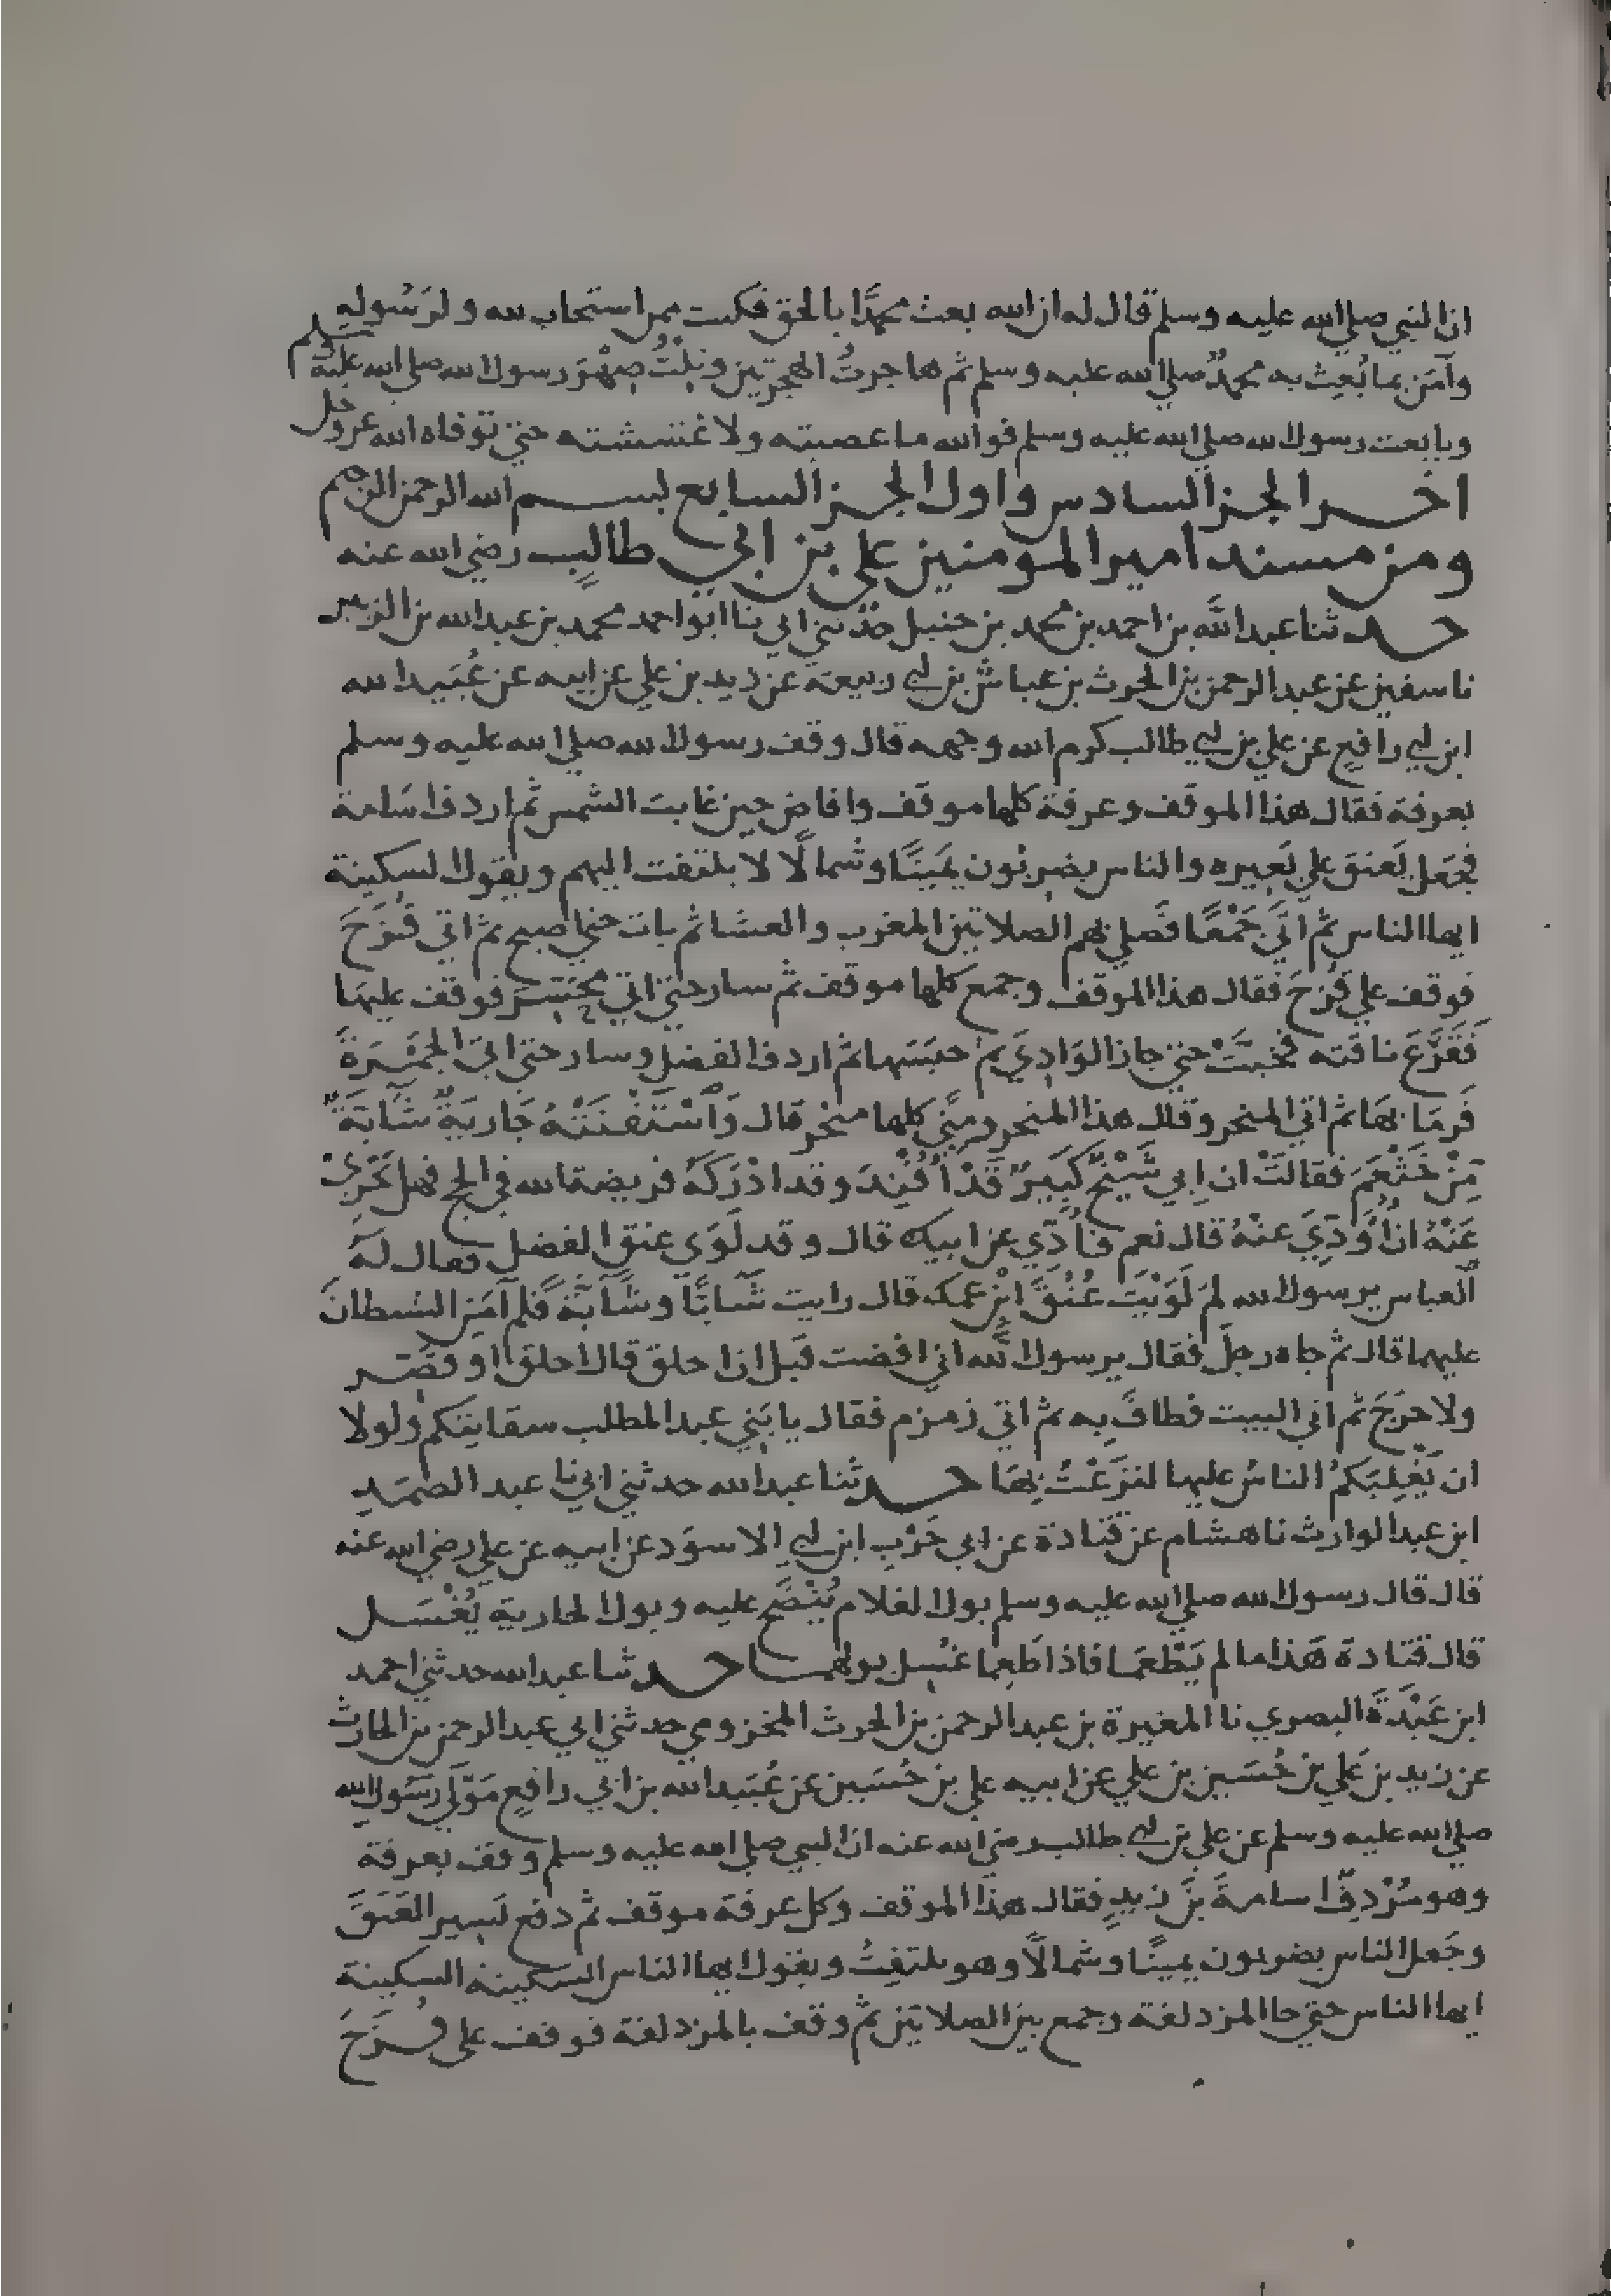 ان النبي صلي الله عليه وسلم قال له ان الله بعث محمدًا بالحق فكنت ممن استجاب لله ولرَسُولهِ
وآمَن بما بُعِث به محمدٌ صلي الله عليه وسلم ثم هاجرتُ الهجرتين ونِلْتُ صِهْرَ رسول الله صلي الله عليه وسلم
وبايعت رسول الله صلي الله عليه وسلم فوالله ما عصيته ولا غششته حتي توفاه الله عز وجل
اخر الجز السادس واول الجز السابع بسم الله الرحمن الرحيم
ومن مسند امير المومنين علي بن ابي طالِبٍ رضي الله عنه
حدثنا عبد الله بن احمد بن محمد بن حنبل حدثني ابي نا ابو احمد محمد بن عبد الله بن الزبير
نا سفين عن عبد الرحمن بن الحرث بن عياش بن ابي ربيعة عن زيد بن علي عن ابيه عن عُبَيد الله
ابن ابي رافِعٍ عن علي بن ابي طالب كرم الله وجهه قال وقف رسول الله صلي الله عليه وسلم
بعرفة فقال هذا الموقف وعرفة كلها موقف وافاض حين غابت الشمس ثم اردف اسَامة
فجَعَل يَعنق علي بَعِيره والناس يضربُون يَمِينًا وشمالًا لا يلتفت اليهم ويقول السكينة
ايها الناس ثم اَتَي جَمْعًا فصَلي بهم الصلاتين المغرب والعشا ثم بات حتي اصبح ثم اتي قُزَحَ
فوقف علي قُزَحَ فقال هذا الموقف وجمع كلها موقف ثم سار حتي اتي مُحَسِّرَ فوقف عليهَا
فَقَرَعَ ناقته فخبَّتْ حتي جاز الوَادِيَ ثم حبَسَهَا ثم اردف الفضل وسار حتي اتَي الجَمْرَةَ
فَرمَا بهَا ثم اتي المنحر وقال هذا المنحر ومِنًي كلها منْحر قال وَاسْتَفْتَتْهُ جَارِيَةٌ شَآبَةٌ
مِنْ خَثْعَمَ فقالتْ ان ابِي شَيْخٌ كَبِيرٌ قَدْ اُفْنِدَ وقد ادْرَكَهُ فريضة الله في الحج فهل يُجْزِئُ
عَنْهُ ان اُؤَدِّيَ عنْهُ قال نعم فاَدِّي عن ابيك قال وقد لَوَي عنق الفضل فقال لهُ
العباس يرسول الله لِمَ لَوَيْتَ عُنُقَ ابْن عمك قال رايت شَابًّا وشَآبَّةً فلم آمَنِ الشيطانَ
عليهما قال ثم جاه رجلٌ فقال يرسول الله اني افضت قبل ان احلق قال احلق او قصِّر
ولا حرَجَ ثم اتي البيت فطافَ به ثم اتي زمزم فقال يا بَنِي عبد المطلب سقايتكم ولولا
ان يَغْلِبَكمُ الناسُ عليها لنزعْتُ بِهَا حدثنا عبد الله حدثني ابي نا عبد الصمَدِ
ابن عبد الوارث نا هشام عن قتادة عن ابي حَرْبِ ابن ابي الاسوَد عن ابيه عن علي رضي الله عنه
قال قال رسول الله صلي الله عليه وسلم بول الغلام يُنْضَحُ عليه وبول الجارية يُغْسَل
قال قتادة هَذا ما لم يَطْعَمَا فاذا طَعِمَا غُسِل بولهما حدثنا عبد الله حدثني احمد
ابن عَبْدَةَ البصري نا المغيرة بن عبد الرحمن بن الحرث المخزومي حدثني ابي عبد الرحمن بن الحارث
عن زيد بن عَلي بن حُسَين بن علي عن ابيه علي بن حُسَين عن عُبَيد الله بن ابي رافِعٍ مَوْلَي رَسُول الله
صلي الله عليه وسلم عن علي بن ابي طالب رضي الله عنه ان النبي صلي الله عليه وسلم وقف بعرفة
وهو مُرْدِفٌ اسامةَ بنَ زيدٍ فقال هذا الموقف وكل عرفة موقف ثم دفع يَسِير العَنَقَ
وجَعل الناس يضربون يمينًا وشمالًا وهو يلتفِتُ ويقول ايها الناس السكينة السكينة
ايها الناس حتي جا المزدلفة وجمع بين الصلاتين ثم وقف بالمزدلفة فوقف على قُزَحَ